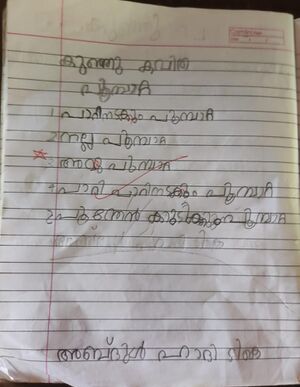 കുഞ്ഞു കവിത
പൂമ്പാറ്റ
1 പാറിനടക്കും പൂമ്പാറ്റ
2 നല്ല പൂമ്പാറ്റ
പൂമ്പാറ്റ
4 പാറി പാറിനടക്കും പൂമ്പാറ്റ
പൂന്തേൻ കുടിക്കുന്ന പൂമ്പാറ്റ
അബ്ദുൾ ഹാദി